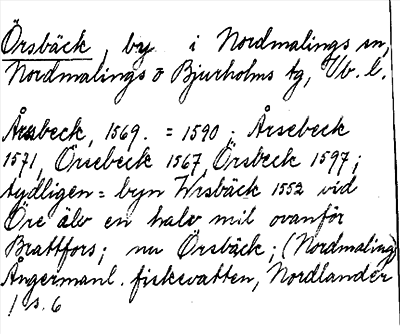 Örsbäck, by i Nordmalings sn,
Nordmalings o Bjurholms tg, Vb. l.
Årsbeck, 1569. = 1590; Årsebeck
1571, Örsebeck 1567, Örsbeck 1597;
tydligen = byn Wrsbäck 1552 vid
Öre älv en halv mil ovanför
Brattfors; nu Örsbäck; (Nordmaling)
Ångermanl. fiskevatten, Nordlander
1 s. 6